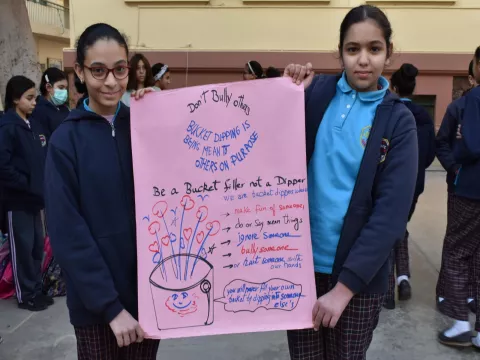 Don't Bully others
BUCKET DIPPING IS
BEING MEAN TO
OTHERS ON PURPOSE
Be a Bucket filler not a Dipper
we are bucket dippers when
→ make fun of someone,
→ do or say mean things
→ ignore someone
→ bully someone
→ or hurt someone with
our hands
you will never fill your own
bucket by dipping into someone
else's